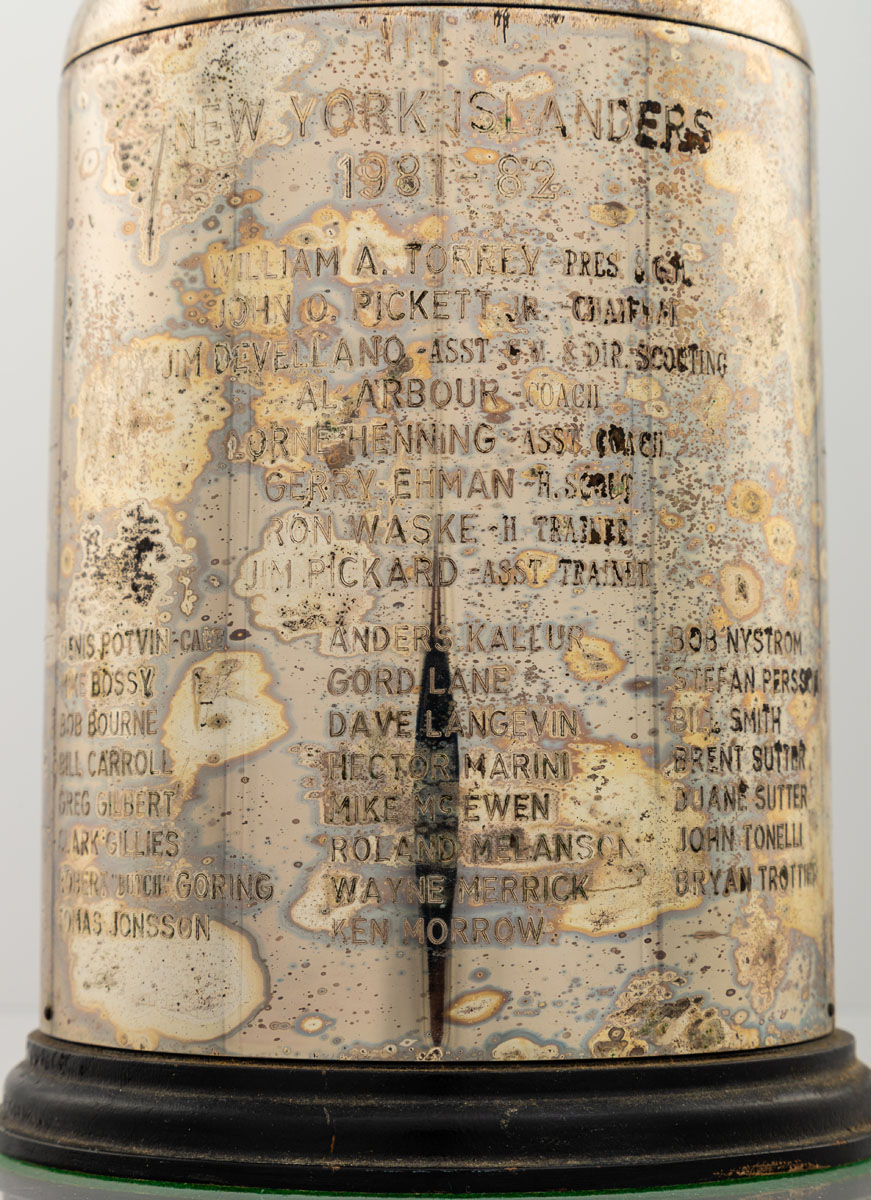 NEW YORK ISLANDERS
1981-82
WILLIAM A. TORREY - PRES & G.M.
JOHN O. PICKETT, JR. - CHAIRMAN
JIM DEVELLANO - ASST G.M. & DIR. SCOUTING
AL ARBOUR - COACH
LORNE HENNING - ASST. COACH
GERRY EHMAN - H. SCOUT
RON WASKE - H TRAINER
JIM PICKARD - ASST. TRAINER
DENIS POTVIN - CAPT
MIKE BOSSY
BOB BOURNE
BILL CARROLL
GREG GILBERT
CLARK GILLIES
ROBERT "BUTCH" GORING
TOMAS JONSSON
ANDERS KALLUR
GORD LANE
DAVE LANGEVIN
HECTOR MARINI
MIKE MC EWEN
ROLAND MELANSON
WAYNE MERRICK
KEN MORROW
BOB NYSTROM
STEFAN PERSSON
BILL SMITH
BRENT SUTTER
DUANE SUTTER
JOHN TONELLI
BRYAN TROTTIER